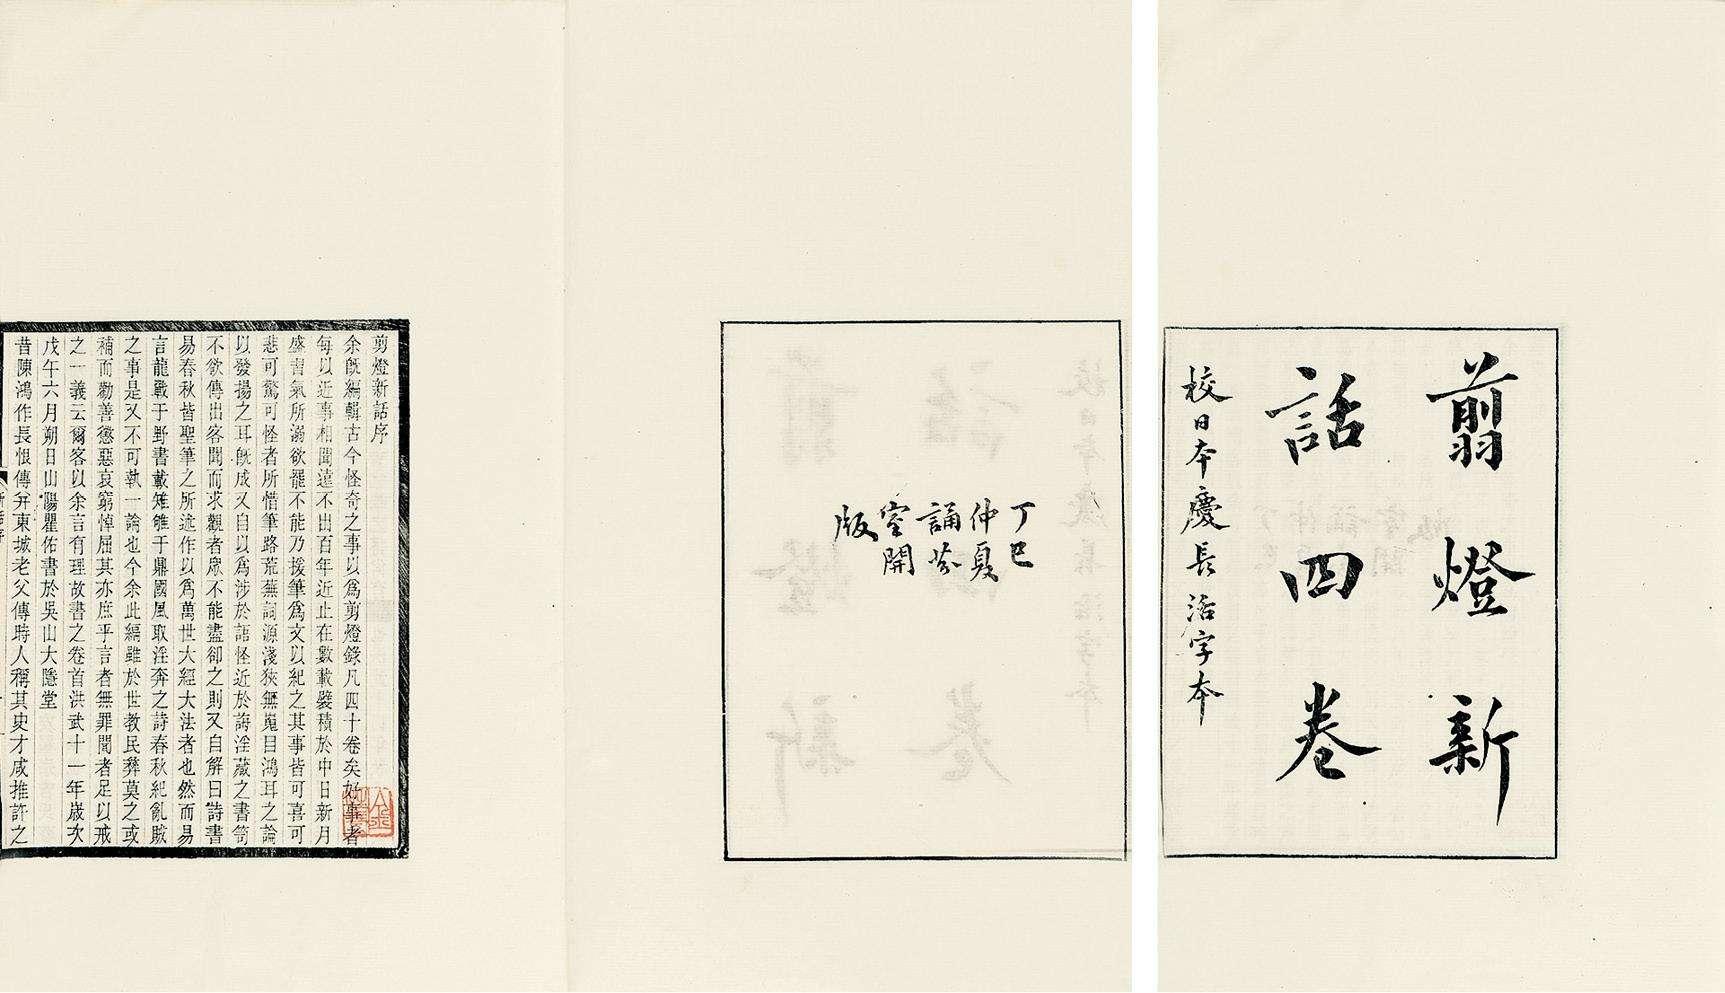 翦燈新
話四卷
校日本慶長活字本
丁巳
仲夏
誦芬
室開
版
剪燈新話序
余既編輯古今怪奇之事以爲剪燈錄凡四十卷矣好事者
每以近事相聞遠不出百年近止在數載襞積於中日新月
盛習氣所溺欲罷不能乃援筆爲文以紀之其事皆可喜可
悲可驚可怪者所惜筆路荒蕪詞源淺狹無嵬目鴻耳之論
以發揚之耳既成又自以爲涉於語怪近於誨淫藏之書笥
不欲傳出客聞而求觀者衆不能盡卻之則又自解曰詩書
易春秋皆聖筆之所述作以爲萬世大經大法者也然而易
言龍戰于野書載雉雊于鼎國風取淫奔之詩春秋紀亂賊
之事是又不可執一論也今余此編雖於世教民彝莫之或
補而勸善懲惡哀窮悼屈其亦庶乎言者無罪聞者足以戒
之一義云爾客以余言有理故書之卷首洪武十一年歲次
戊午六月朔日山陽瞿佑書於吳山大隱堂
昔陳鴻作長恨傳并東城老父傳時人稱其史才咸推許之